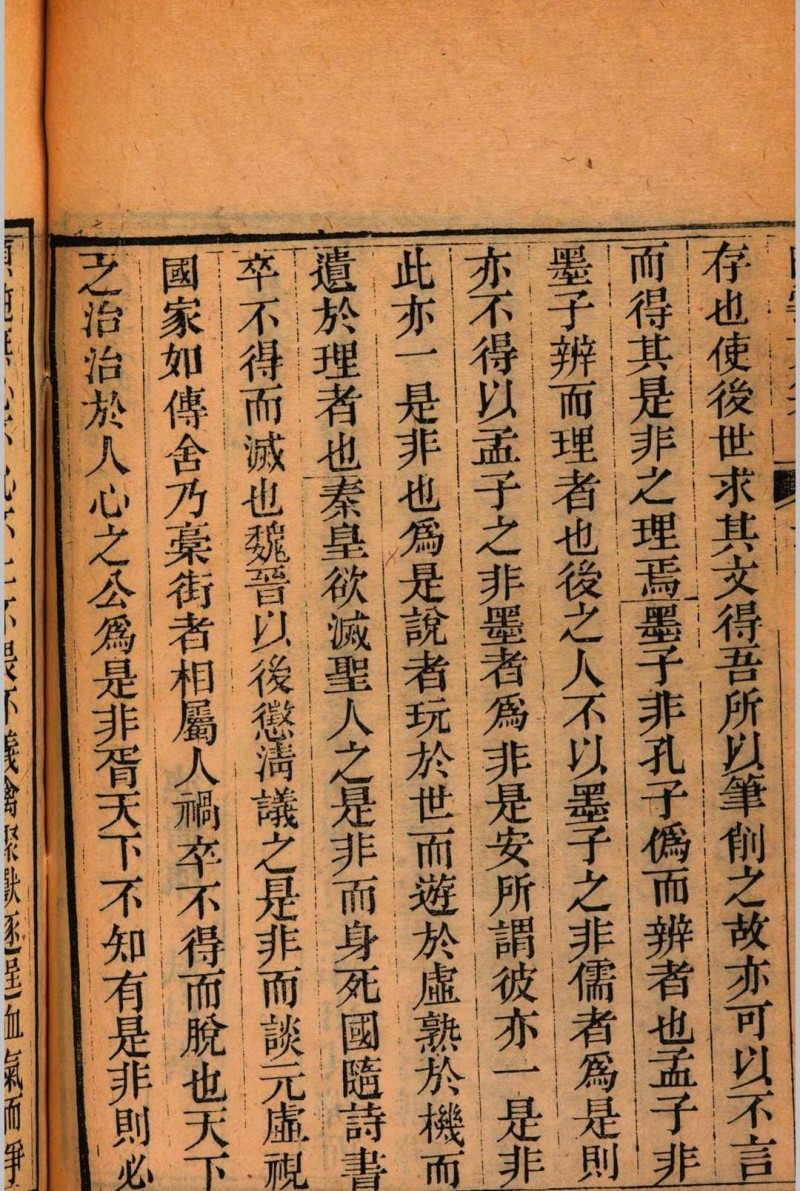 存也使後世求其文得吾所以筆削之故亦可以不言
而得其是非之理焉墨子非孔子僞而辨者也孟子非
墨子辨而理者也後之人不以墨子之非儒者爲是則
亦不得以孟子之非墨者爲非是安所謂彼亦一是非
此亦一是非也爲是說者玩於世而遊於虛熟於機而
遺於理者也秦皇欲滅聖人之是非而身死國隨詩書
卒不得而滅也魏晉以後懲淸議之是非而談元虛視
國家如傳舍乃稾街者相屬人禍卒不得而脫也天下
之治治於人心之公爲是非胥天下不知有是非則必